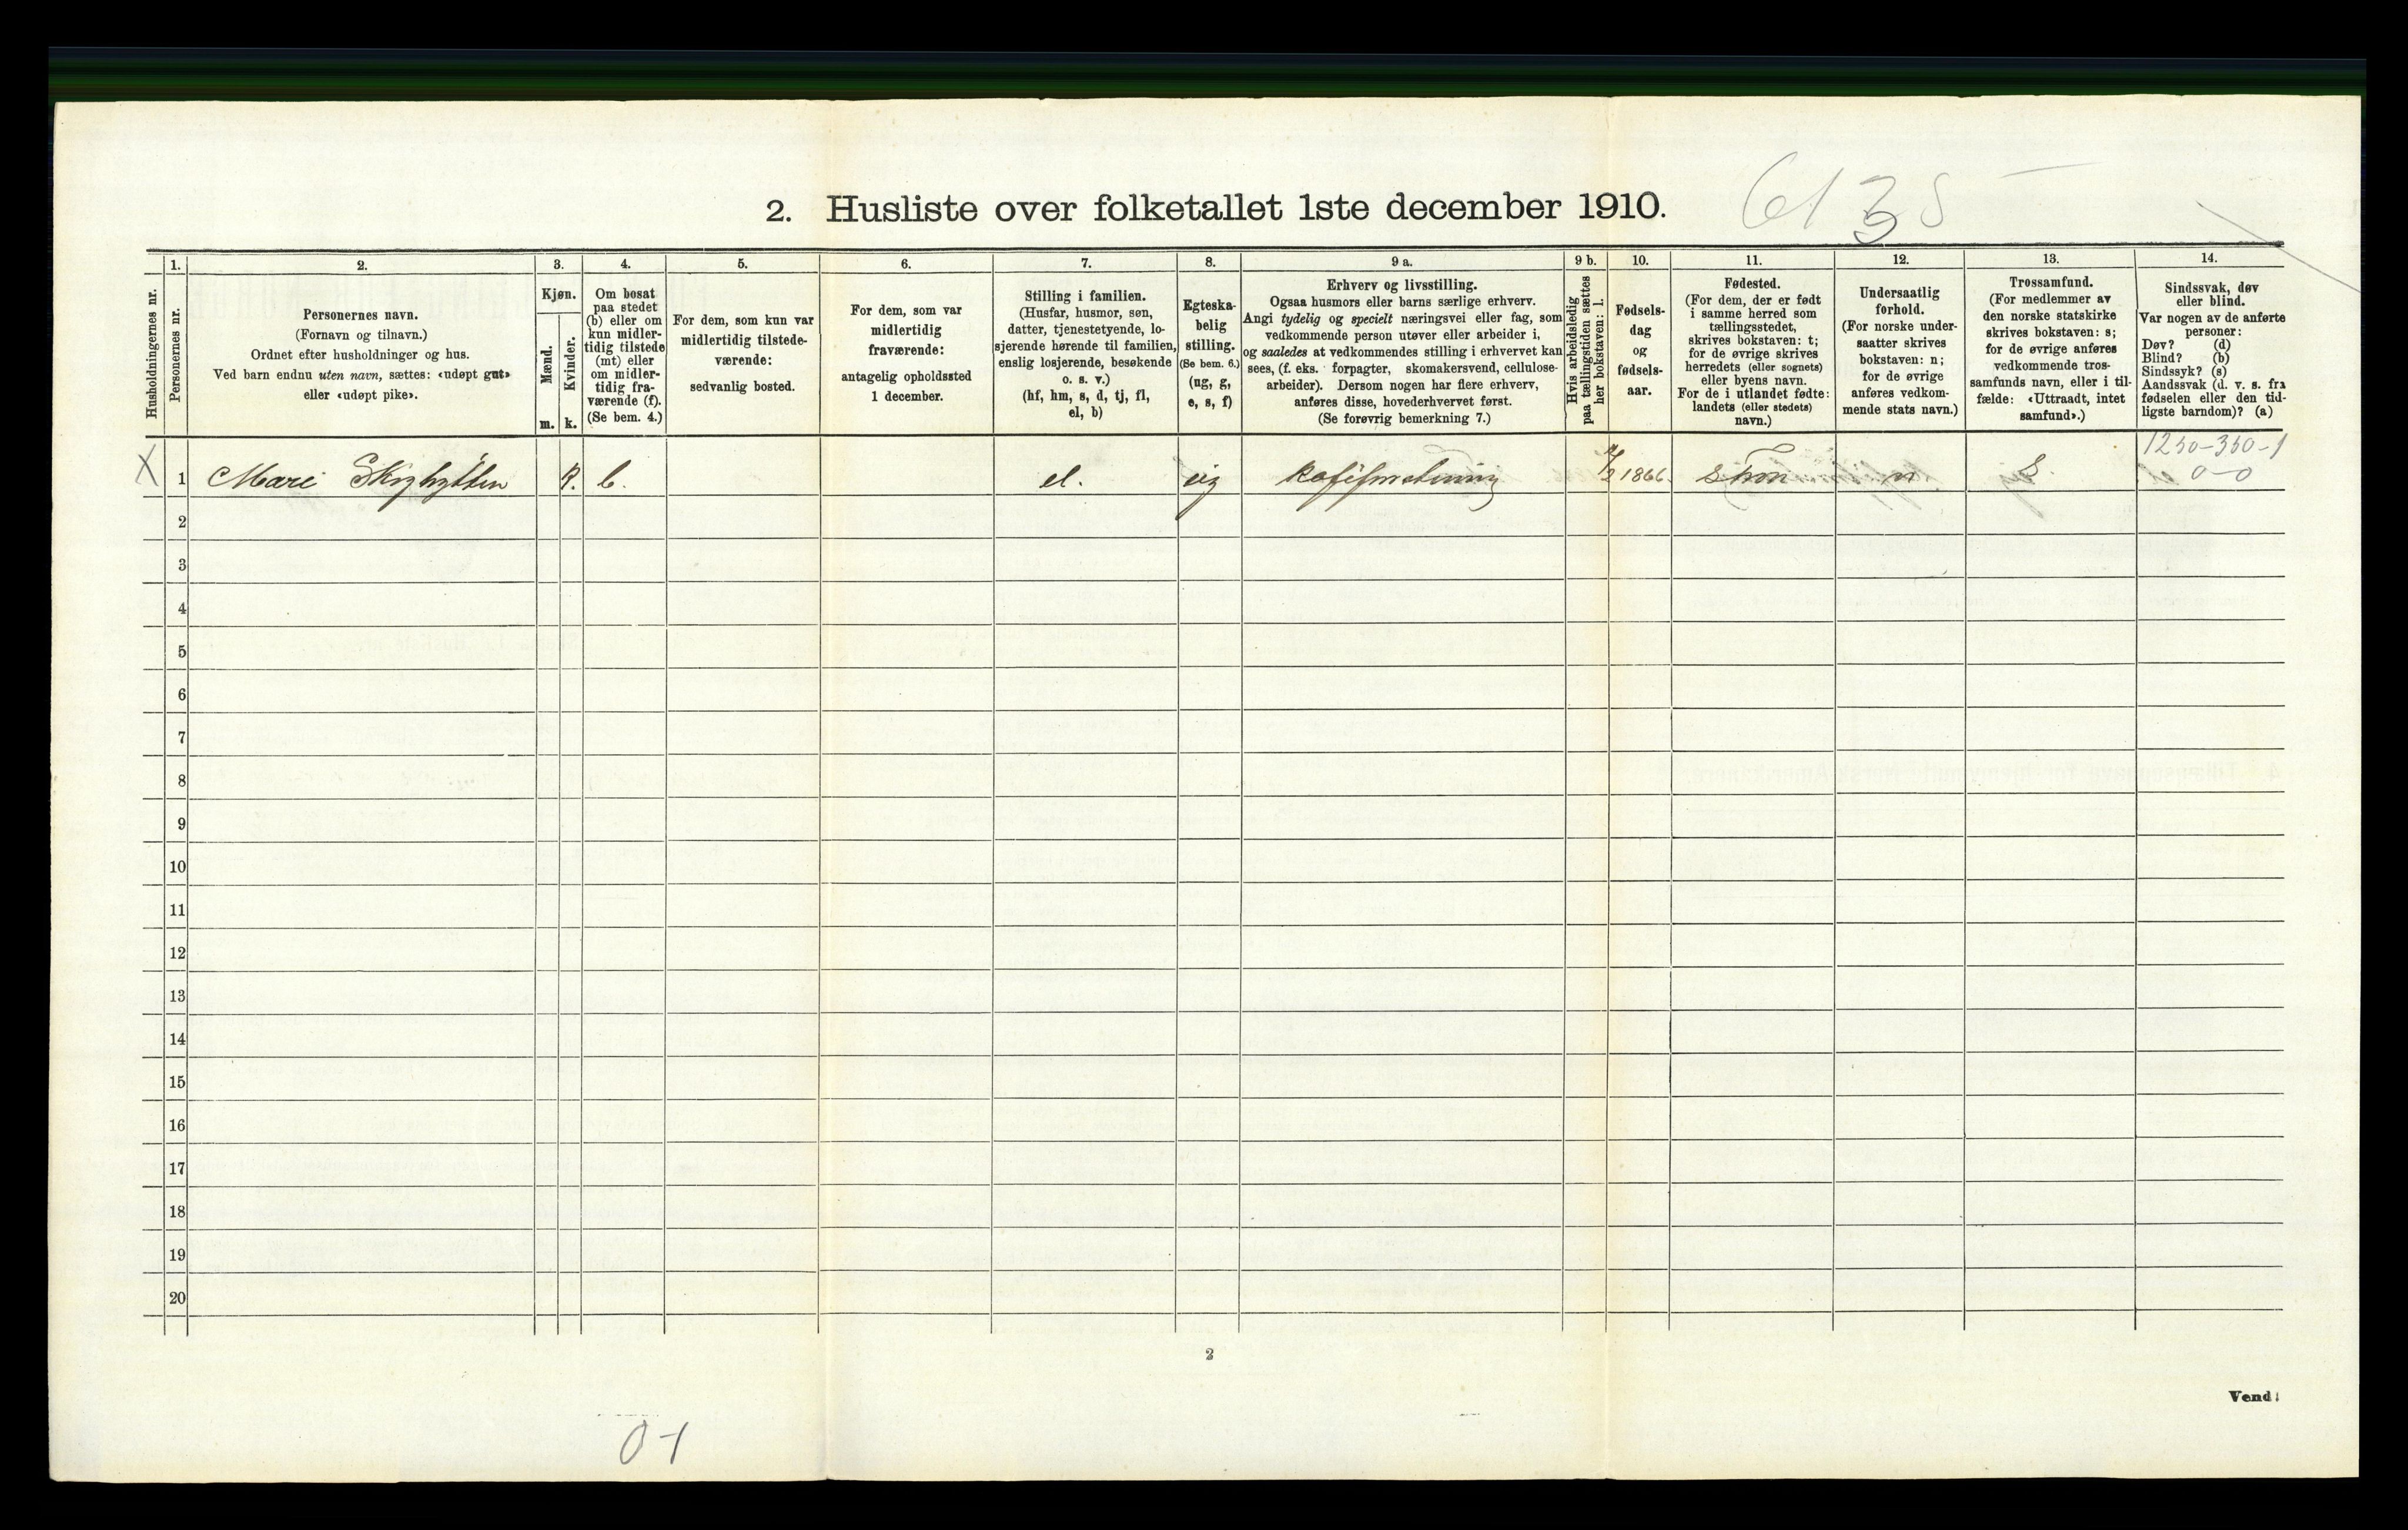 6135
2. Husliste over folketallet 1ste december 1910.
Husholdningernes nr.
1.
Personernes nr.
2.
Personernes navn.
(Fornavn og tilnavn.)
Ordnet efter husholdninger og hus.
Ved barn endnu uten navn, sættes: «udøpt gut»
eller «udøpt pike».
3.
Kjøn.
Mænd.
Kvinder.
m. k.
4.
Om bosat
paa stedet
(b) eller om
kun midler-
tidig tilstede
(mt) eller
om midler-
tidig fra-
værende (f).
(Se bem. 4.)
5.
For dem, som kun var
midlertidig tilstede-
værende:
sedvanlig bosted.
6.
For dem, som var
midlertidig
fraværende:
antagelig opholdssted
1 december.
7.
Stilling i familien.
(Husfar, husmor, søn,
datter, tjenestetyende, lo-
sjerende hørende til familien,
enslig losjerende, besøkende
o. s. v.)
(hf, hm, s, d, tj, fl,
el, b)
8.
Egteska-
belig
stilling.
(Se bem. 6.)
(ug, g,
e, s, f)
9 a.
Erhverv og livsstilling.
Ogsaa husmors eller barns særlige erhverv.
Angi tydelig og specielt næringsvei eller fag, som
vedkommende person utøver eller arbeider i,
og saaledes at vedkommendes stilling i erhvervet kan
sees, (f. eks. forpagter, skomakersvend, cellulose-
arbeider). Dersom nogen har flere erhverv,
anføres disse, hovederhvervet først.
(Se forøvrig bemerkning 7.)
9 b.
Hvis arbeidsledig
paa tællingstiden sættes
her bokstaven: l.
10.
Fødsels-
dag
og
fødsels-
aar.
11.
Fødested.
(For dem, der er født
i samme herred som
tællingsstedet,
skrives bokstaven: t;
for de øvrige skrives
herredets (eller sognets)
eller byens navn.
For de i utlandet fødte:
landets (eller stedets)
navn.)
12.
Undersaatlig
forhold.
(For norske under-
saatter skrives
bokstaven: n;
for de øvrige
anføres vedkom-
mende stats navn.)
13.
Trossamfund.
(For medlemmer av
den norske statskirke
skrives bokstaven: s;
for de øvrige anføres
vedkommende tros-
samfunds navn, eller i til-
fælde: «Uttraadt, intet
samfund».)
14.
Sindssvak, døv
eller blind.
Var nogen av de anførte
personer:
Døv? (d)
Blind? (b)
Sindssyk? (s)
Aandssvak (d. v. s. fra
fødselen eller den tid-
ligste barndom)? (a)
1250-350-1
X 1 Mari K. b. el. ug 1866. n S. 0-0
2
3
4
5
6
7
8
9
10
11
12
13
14
15
16
17
18
19
20
2
Vend!
0-1